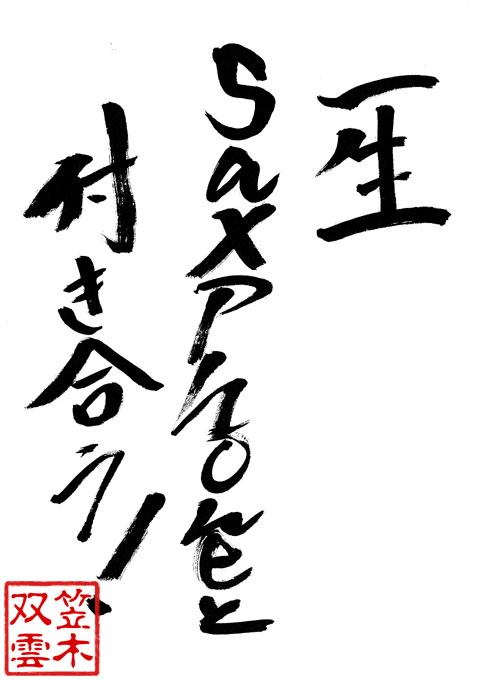 一生
Saxphoneと
付き合う!
笠木
双雲